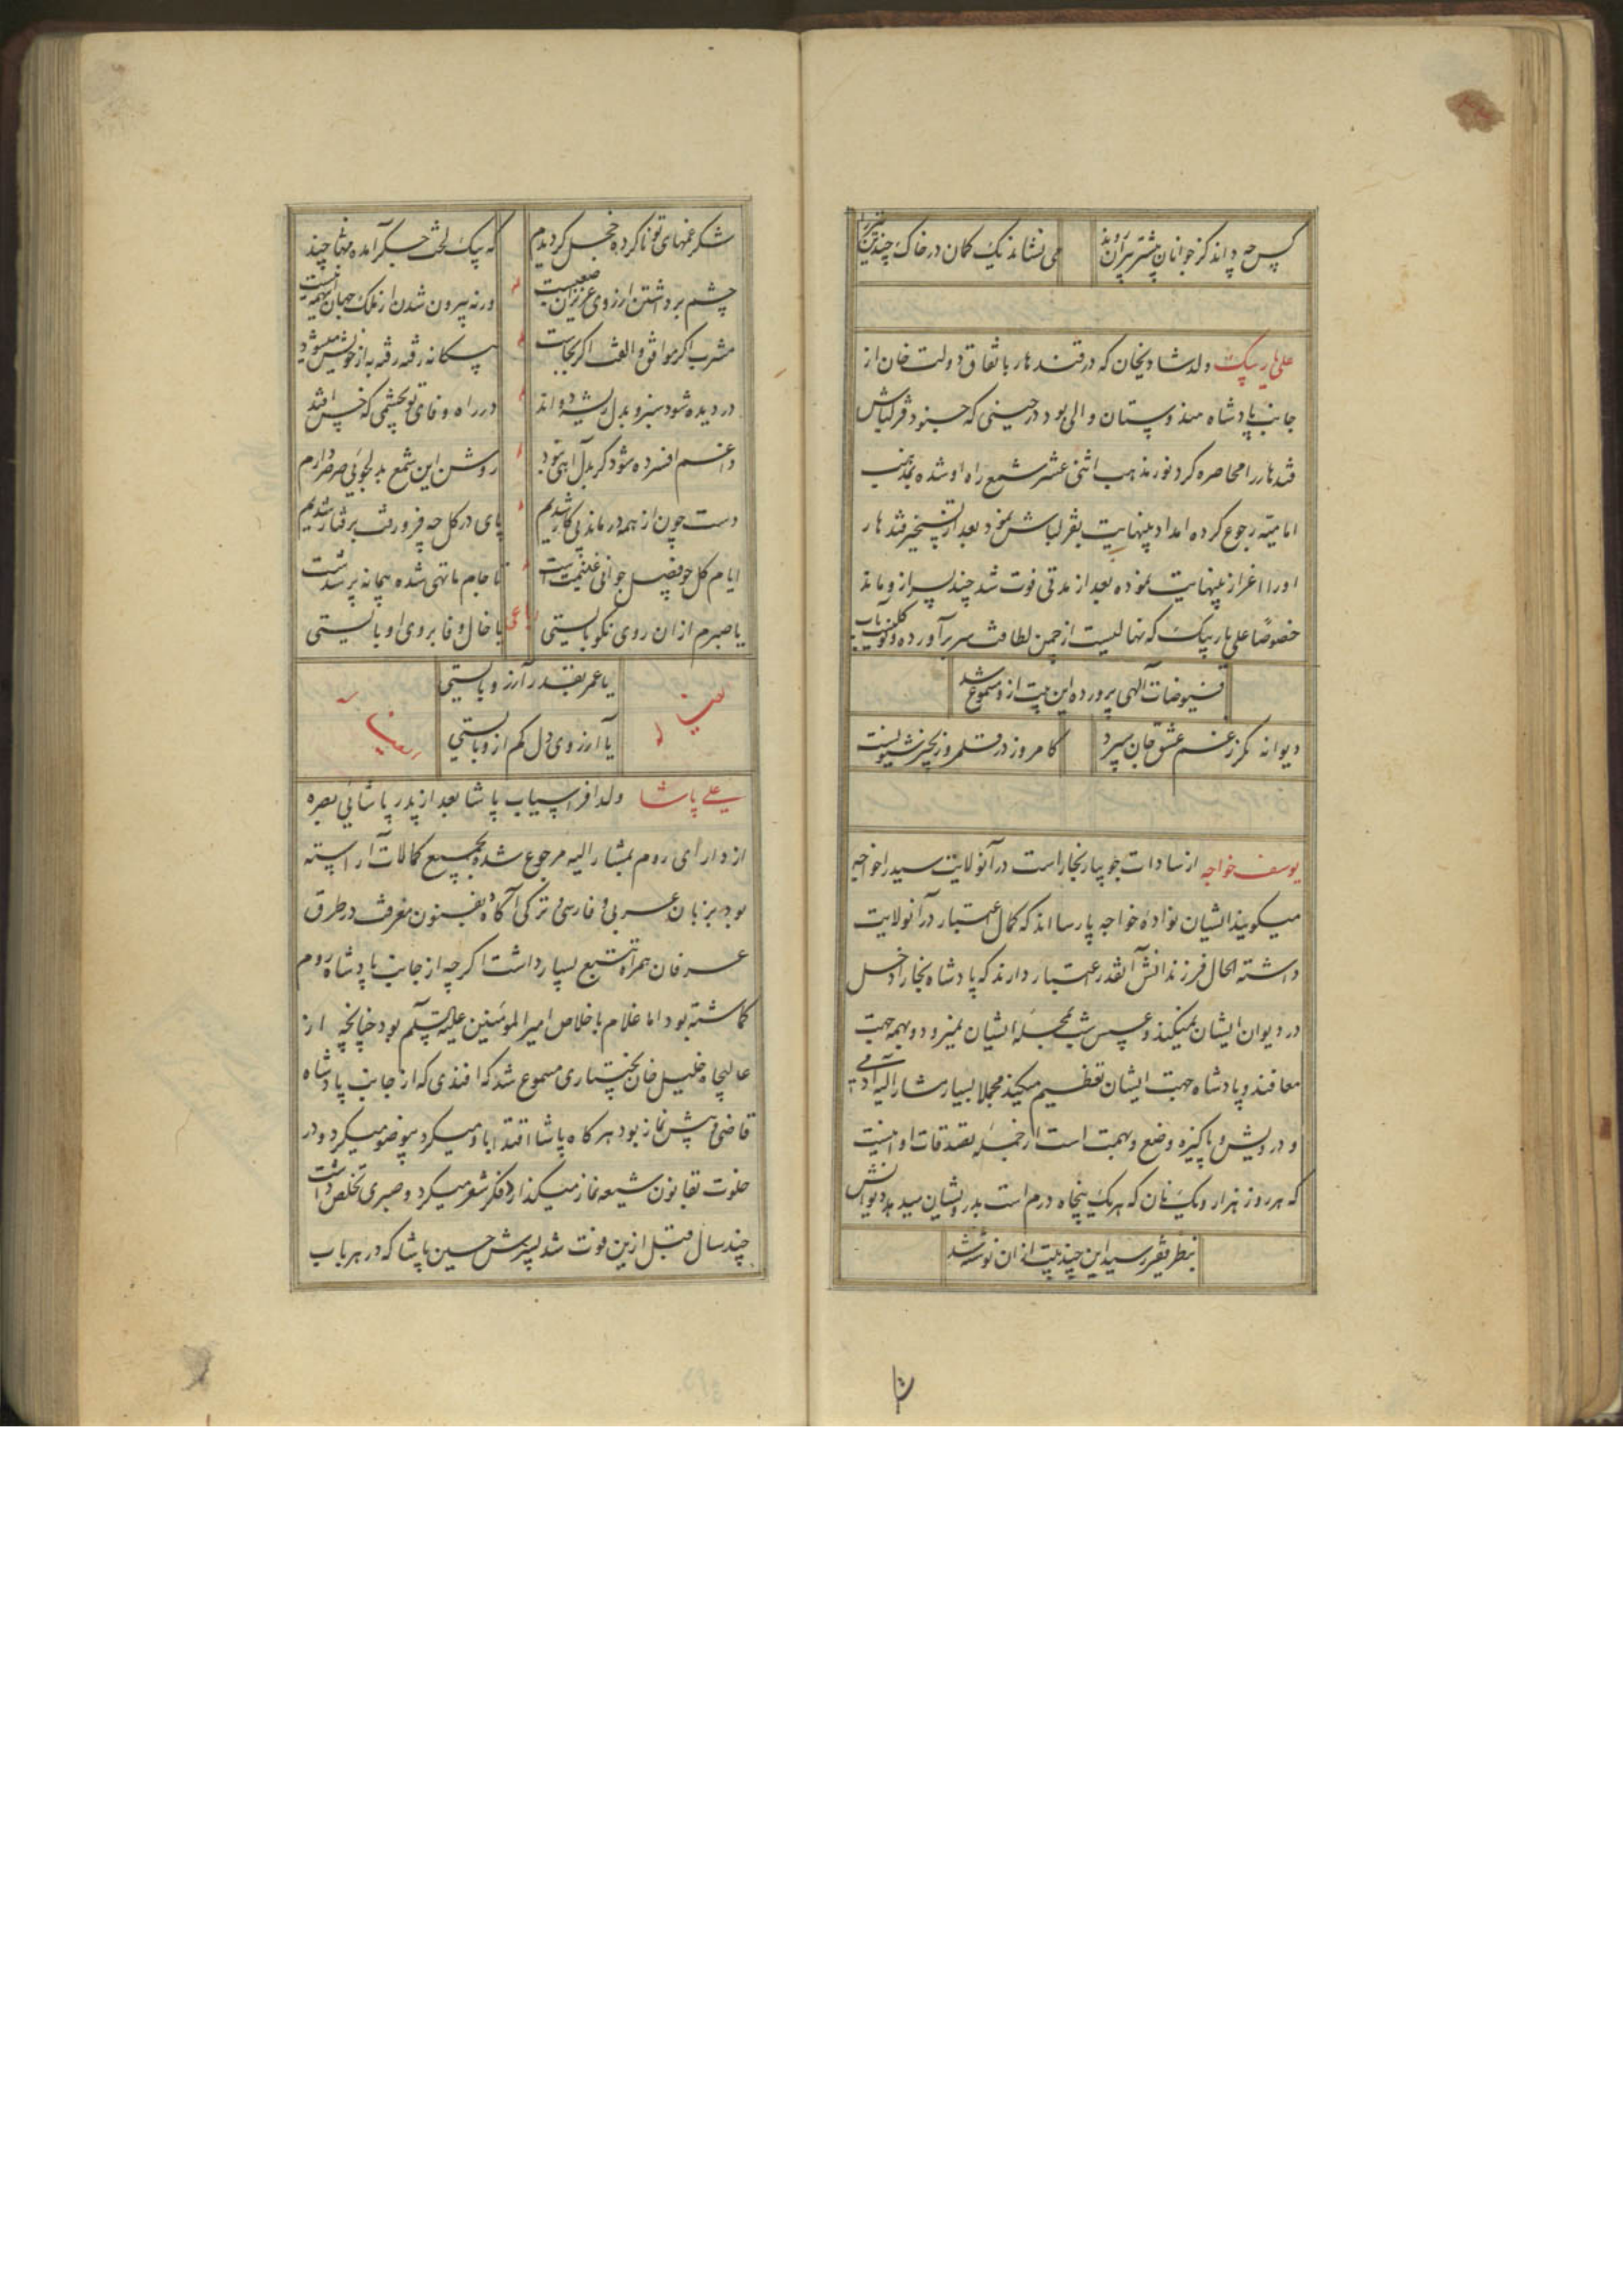 پس چه داند کز جوانان پیشتر پیران روند
می نشاند یک کمان در خاک چندین تیر را
علی یار بیک ولد شادیخان که در قندهار باتفاق دولت خان از
جانب پادشاه هندوستان والی بود در حینی که جنود قزلباش
قندهار را محاصره کرد نور مذهب اثنی عشر شمع راه او شده بمذهب
امامیه رجوع کرده امداد بینهایت بقزلباش نمود بعد از تسخیر قندهار
او را اعزاز بینهایت نموده بعد از مدتی فوت شد چند پسر ازو ماند
خصوصا علی یار بیک که نهالیست از چمن لطافت سر برآورده و
فیوضات آلهی پرورده این بیت ازو مسموع شد
دیوانه مگر ز غم عشق جان سپرد
کامروز در قلمرو زنجیر شیونست
یوسف خواجه از سادات جویبار بخاراست در آنولایت سید را خواجه
میگویند ایشان نواده خواجه پارسا اند که کمال اعتبار در آنولایت
داشته الحال فرزندانش آنقدر اعتبار دارند که پادشاه بخارا دخل
در دیوان ایشان نمیکند و عسس شب بمحله ایشان نمیرود و بهمه جهت
معافند و پادشاه جهت ایشان تعظیم میکند مجملا بسیار مشار الیه آدمی
و درویش و پاکیزه وضع و بهمت است از جمله تصدقات او اینست
که هر روز هزار و یک نان که هر یک پنجاه درم است بدرویشان میدهد دیوانش
بنظر فقیر رسید این چند بیت از ان نوشته شد
شکر غمهای تو نا کرده خجل گردیدم
که بیک لخت جگر آمده مهمان چند
چشم برداشتن از روی عزیزان صعبست
ورنه بیرون شدن از ملک جهان اینهمه نیست
مشرب اگر موافق و الفت اگر بجاست
بیگانه رفته رفته به از خویش میشود
در دیده شود سبز و بدل ریشه دواند
در راه وفای تو بچشمی که خس افتد
داغم افسرده شود گر بدل آهی نبود
روشن این شمع بدلجوئی صرصر دارم
دست چون از همه در ماند پی کار شدیم
پای در گل چه فرو رفت برفتار شدیم
ایام گل چو فصل جوانی غنیمت است
تا جام ما تهی شده پیمانه پر شدست
یا صبرم از ان روی نکو بایستی
یا خال وفا بروی او بایستی
یا عمر بقدر آرزو بایستی
یا آرزوی دل کم ازو بایستی
علی پاشا ولد افراسیاب پاشا بعد از پدر پاشائی بصره
از دارای روم بمشار الیه مرجوع شده بجمیع کمالات آراسته
بود بزبان عربی و فارسی و ترکی آگاه بفنون معرفت در طرق
عرفان همراه تتبع بسیار داشت اگر چه از جانب پادشاه روم
گماشته بود اما غلام باخلاص امیر المومنین علیه السلم بود چنانچه از
عالیجاه خلیل خان بختیاری مسموع شد که افندی که از جانب پادشاه
قاضی و پیش نماز بود هر گاه پاشا اقتدا باو میکرد بیوضو میکرد و در
خلوت بقانون شیعه نماز میگذارد فکر شعر میکرد و صبری تخلص داشت
چند سال قبل ازین فوت شد پسرش حسین پاشا که در هر باب